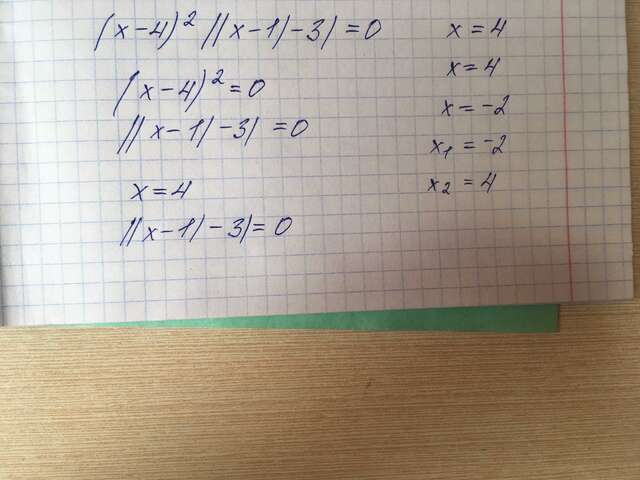 (x-4)² ||x-1|-3|=0
(x-4)²=0
||x-1|-3|=0
x=4
||x-1|-3|=0
x=4
x=4
x=-2
x₁=-2
x₂=4